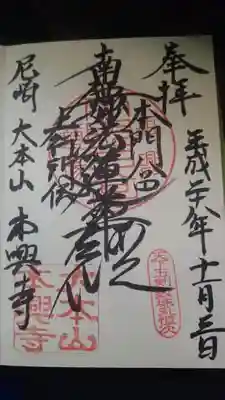 奉拝
平成二十八年十一月三日
本門八品
南無妙法蓮華経
上行所伝
尼崎 大本山 本興寺
大本山
本興寺